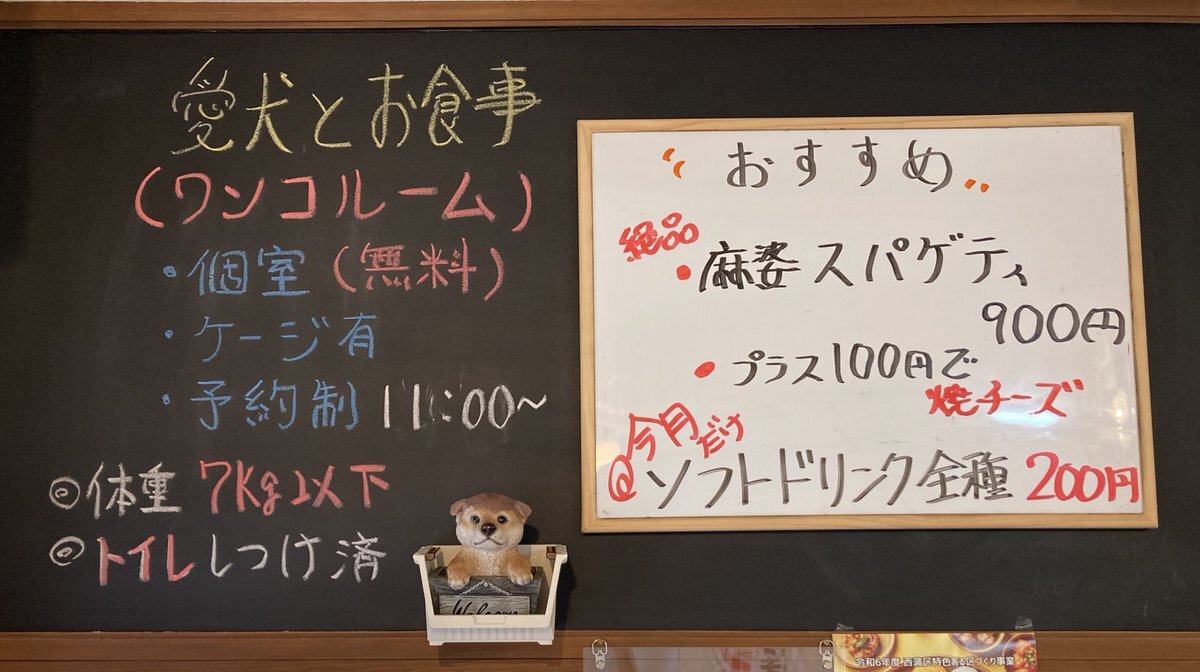 愛犬とお食事
(ワンコルーム)
・個室(無料)
・ケージ有
・予約制 11:00~
◎体重 7Kg以下
◎トイレしつけ済
Welcome
おすすめ
絶品
・麻婆スパゲティ
900円
・プラス100円で
焼チーズ
今月だけ
◎ソフトドリンク全種 200円
令和6年度 西蒲区特色ある区づくり事業